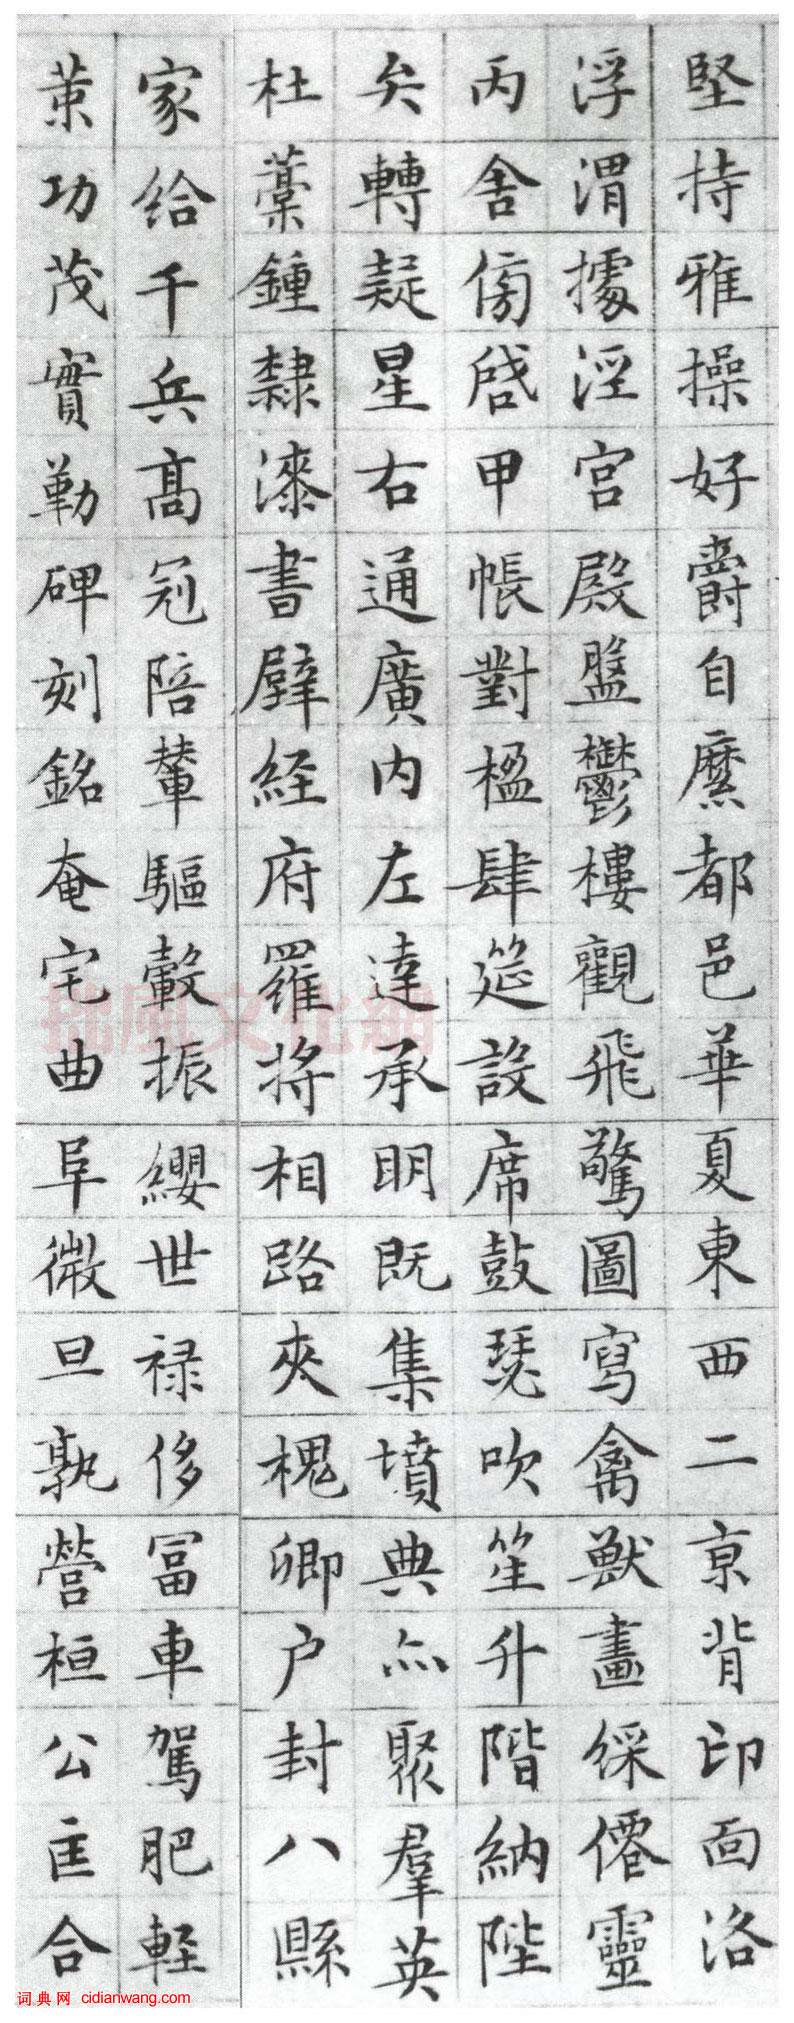 堅持雅操好爵自縻都邑華夏東西二京背邙面洛
浮渭據涇宮殿盤鬱樓觀飛驚圖寫禽獸畫綵僊靈
丙舍傍啓甲帳對楹肆筵設席鼓瑟吹笙升階納陛
弁轉疑星右通廣内左達承明既集墳典亦聚羣英
杜藁鍾隸漆書壁經府羅將相路夾槐卿户封八縣
家給千兵高冠陪輦驅轂振纓世禄侈冨車駕肥輕
策功茂實勒碑刻銘奄宅曲阜微旦孰營桓公匡合
拙風文化網
词典网 cidianwang.com